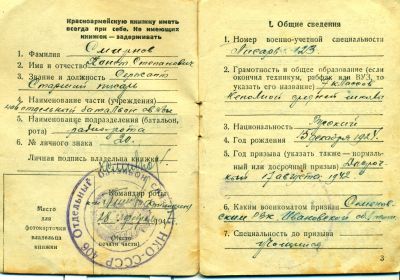 Красноармейскую книжку иметь
всегда при себе. Не имеющих
книжек — задерживать
1. Фамилия Смирнов
2. Имя и отчество Степанович
3. Звание и должность Сержант
Старший
4. Наименование части (учреждения)
батальон связи
5. Наименование подразделения (батальон,
рота) радиорота
6. № личного знака 20.
Личная подпись владельца книжки
Командир роты
Место
для
фотокарточки
владельца
книжки
194
печати части)
Отдельный
НКО-СССР 406
I. Общие сведения
1. Номер военно-учетной специальности
123
2. Грамотность и общее образование (если
окончил техникум, рабфак или ВУЗ, то
указать его название) 7 классов
средней школы
3. Национальность Русский
4. Год рождения 15 декабря
5. Год призыва (указать также — нормаль-
ный или досрочный призыв) Досроч-
17 августа 1942
6. Каким военкоматом призван
РВК Ивановской
7. Специальность до призыва
учащийся
3